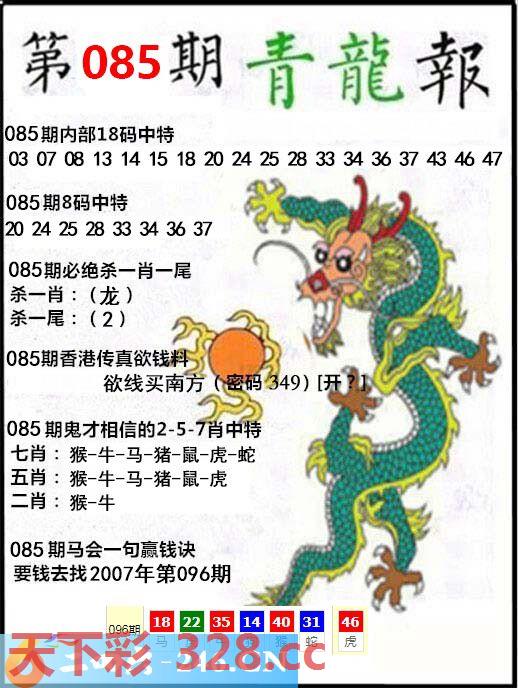 第085期青龍報
085期内部18码中特
03 07 08 13 14 15 18 20 24 25 28 33 34 36 37 43 46 47
085期8码中特
20 24 25 28 33 34 36 37
085期必绝杀一肖一尾
杀一肖：（龙）
杀一尾：（2）
085期香港传真欲钱料
欲线买南方（密码 349）[开？]
085期鬼才相信的2-5-7肖中特
七肖：猴-牛-马-猪-鼠-虎-蛇
五肖：猴-牛-马-猪-鼠-虎
二肖：猴-牛
085期马会一句赢钱诀
要钱去找2007年第096期
096期 18 22 35 14 40 31 46
马 猴 蛇 虎
天下彩-328.cc